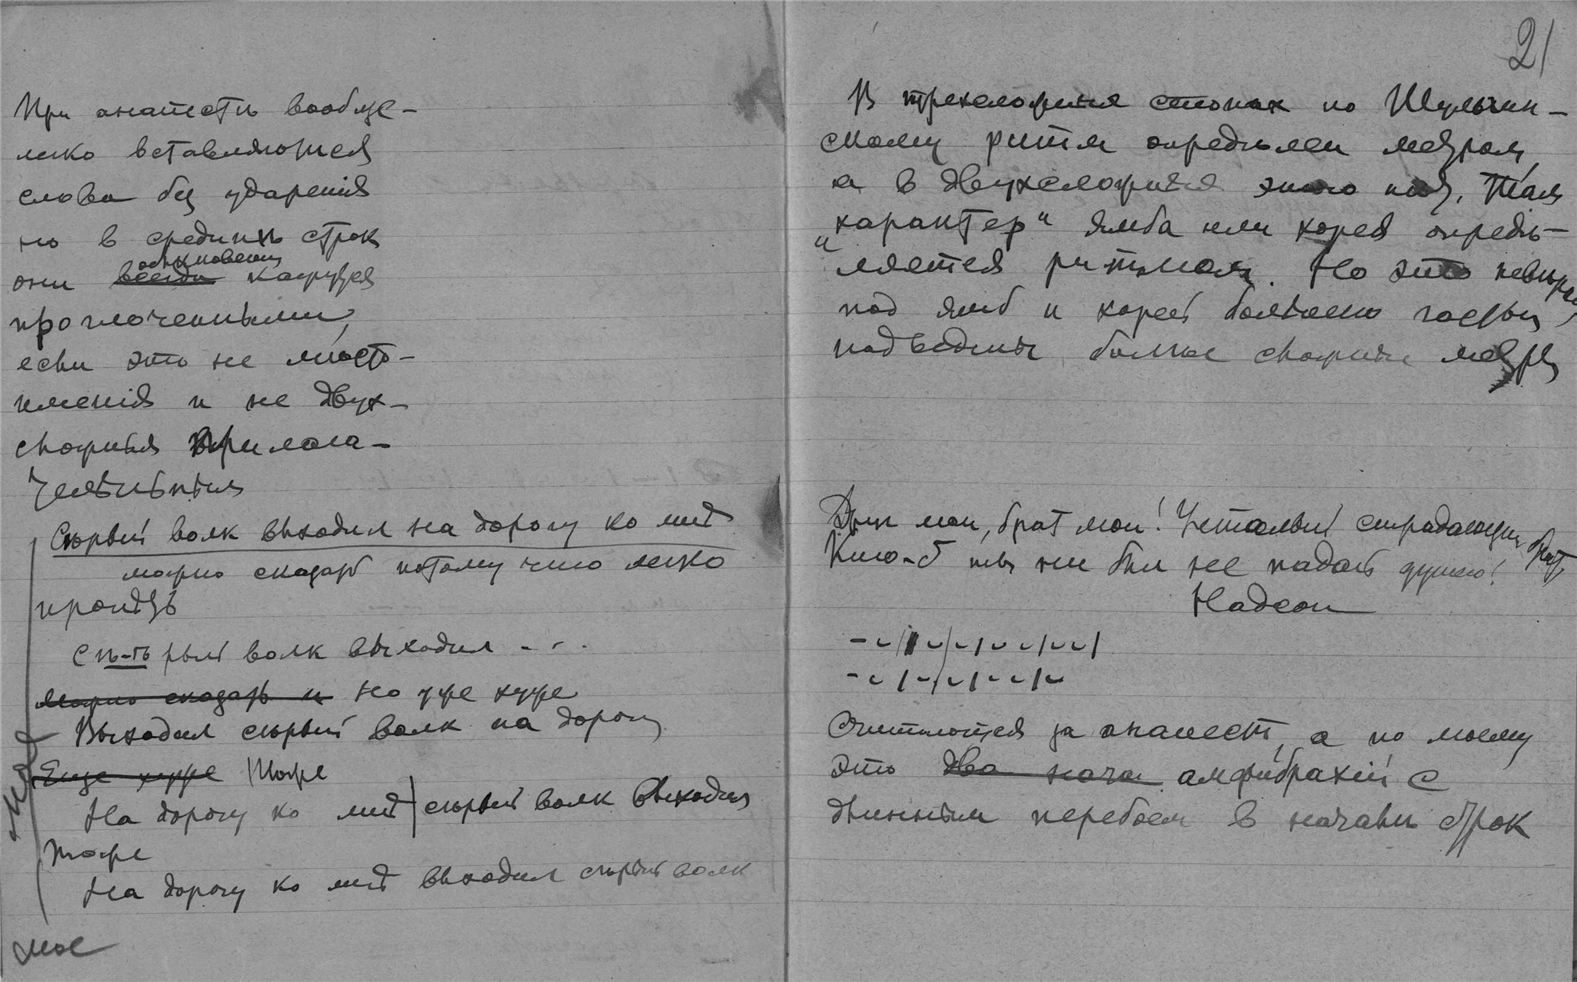 При анапестъ вообще-
легко вставляются
слова без ударенія
но в срединъ строк
они всегда обыкновенно кажутся
проглоченными,
если это не мъсто-
именія и не двух-
сложныя прилага-
тельныя
Сърый волк выходил на дорогу ко мнъ
можно сказать потому что легко
пройдетъ
Съ-ъ рый волк выходил - . .
можно сказать и но уже хуже
Выходил сърый волк на дорогу
Еще хуже | Тоже
На дорогу ко мнъ | сърый волк выходил
Тоже
На дорогу ко мнъ выходил сърый волк
мое
21
В трехсложныя стопах по Шульгин-
скому ритм опредълен метром,
а в двухсложныя этого нът. Там
характер" ямба или хорея опредъ-
"ляется ритмом. Но это невърно,
под ямб и хорей
подведены болъе сложные метры
Друг мой, брат мой! Усталый страдающий брат,
Кто-б ты ни был не падай душою!
Надсон
Считаются за анапест, а по моему
это два нача амфибрахий с
длинным перебоем в началъ строк